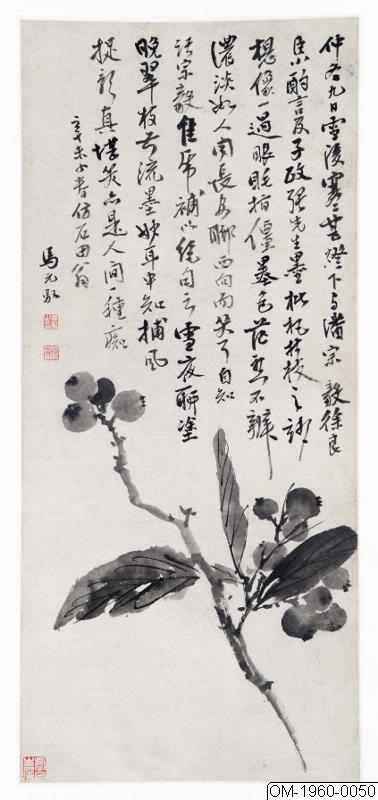 仲冬九日雪後寒甚燈下与潘宗毅徐良
臣小酌言及子政張先生墨枇杷折枝之
想像一過眼眵指僵墨色茫然不辨
濃淡如人聞長安聊西向而笑了自知
語宗毅隹帋補以絶句云雪夜聊塗
晚翠枝古流墨妙耳中知捕風
捉影真堪笑亦是人間種痴
辛未小春仿石田翁
馬元馭
OM-1960-0050